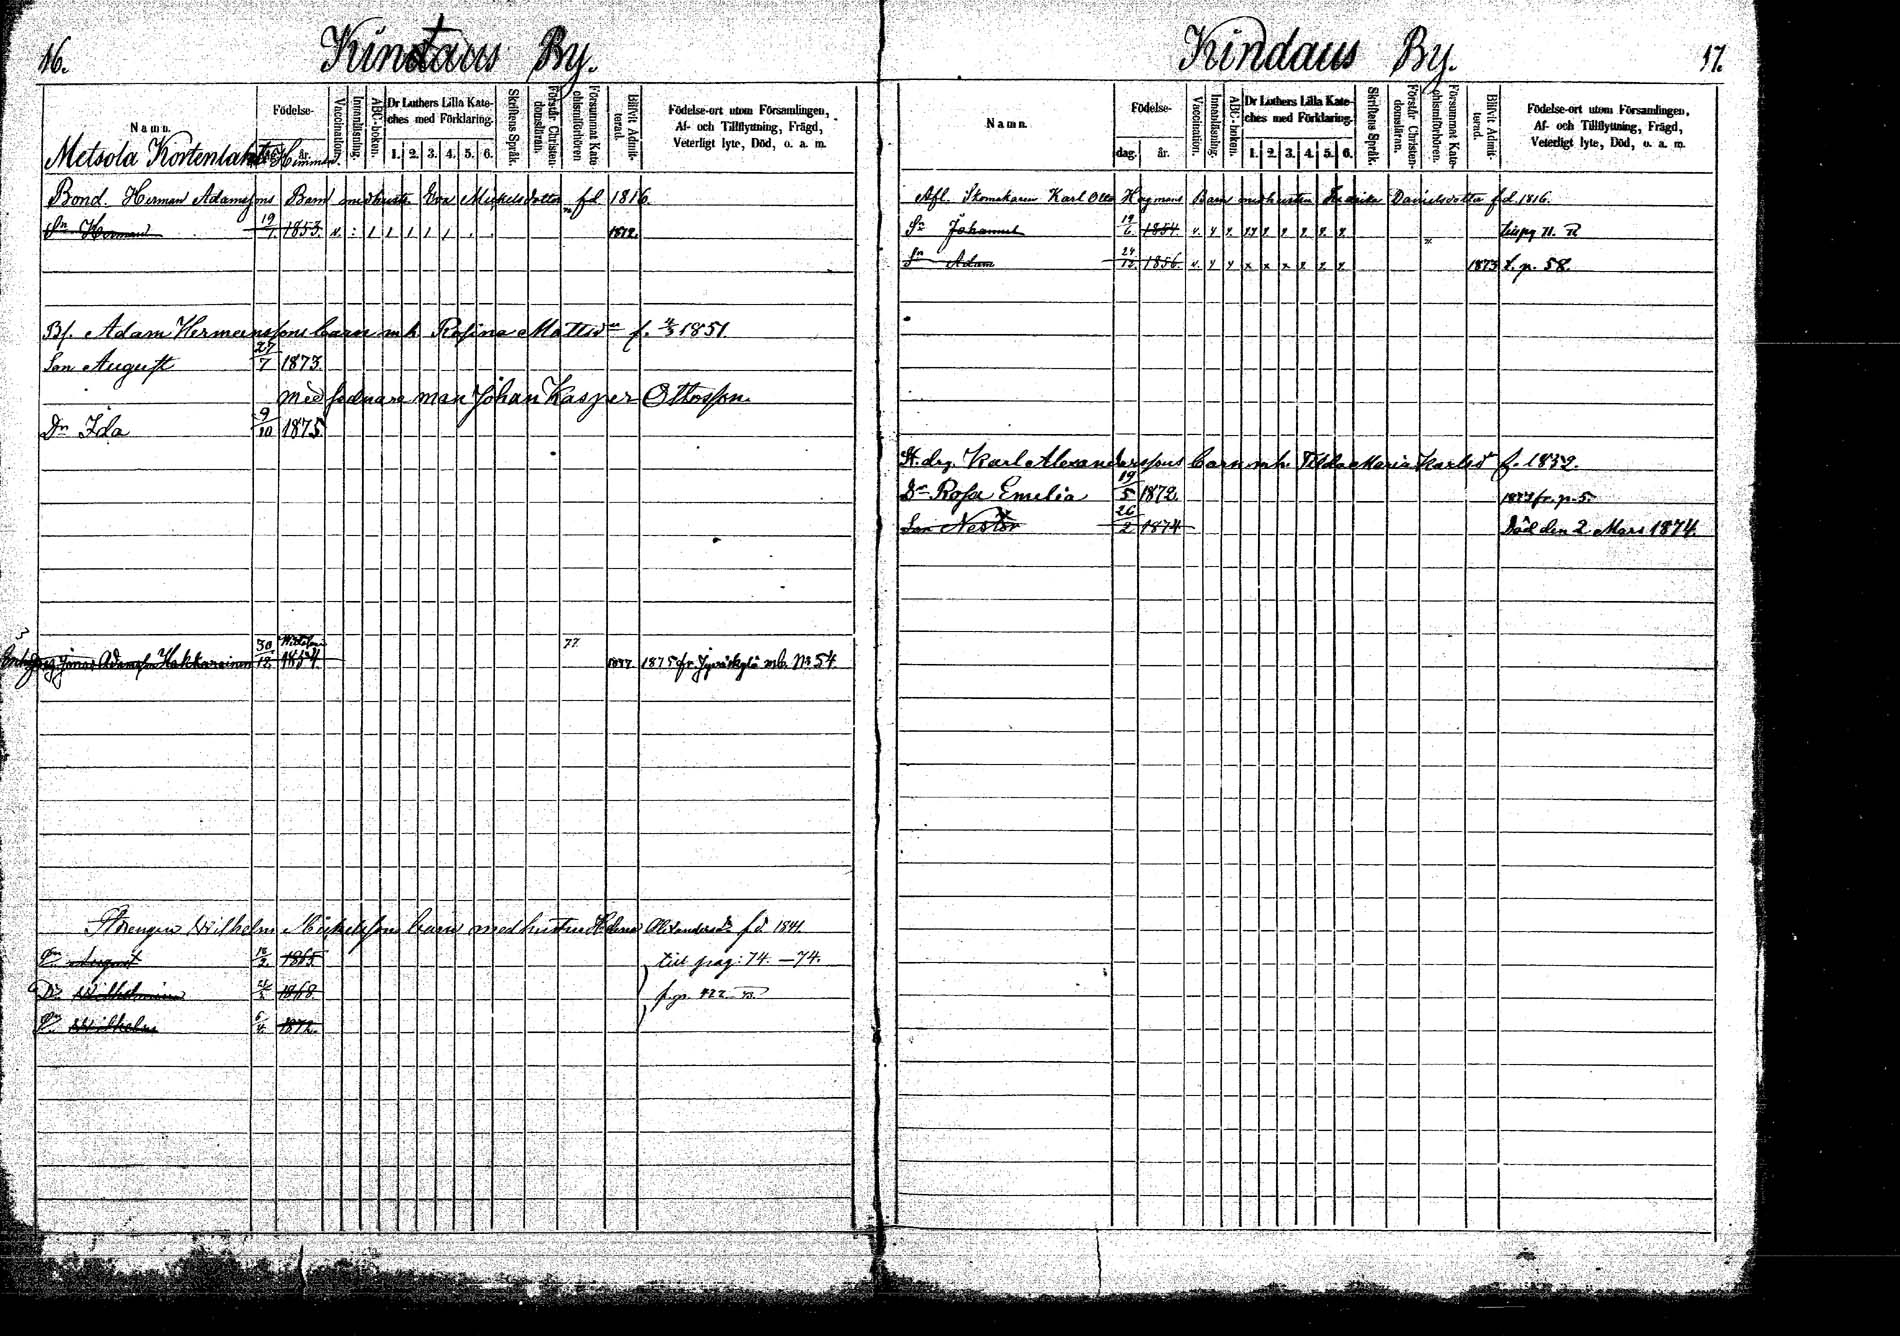 16.
Kintaus By.
Namn.
Födelse-
dag. år.
Vaccination.
Innanläsning.
ABC-boken.
Dr Luthers Lilla Kate-
ches med Förklaring.
1. 2. 3. 4. 5. 6.
Skriftens Språk.
Förstår Christen-
domsläran.
Försummat Kate-
chismiförhören
Blifvit Admit-
terad.
Födelse-ort utom Församlingen,
Af- och Tillflyttning, Frägd,
Veterligt lyte, Död, o. a. m.
Metsola Kortenlahti Hemman.
Bond. Herman Adamssons Barn med hustr. Eva Mickelsdotter fd 1816.
Sn Herman 19/7 1853. v. 1872.
Bf. Adam Hermanssons barn m.h. Rosina Mattsdr f. 4/3 1851.
Son August 27/7 1873.
med sednare man Johan Kasper Ottosson.
Dr Ida 9/10 1875.
Jonas Adamsson Hakkarainen 30/12. 1854. 77 1877 1875 fr Jyväskylä mb. No 54
Drengen Wilhelm Mickelssons barn med hustrun Helena Alexandersdr fd 1841.
Sn August 12/2. 1865 till pag: 74. —74.
Dr Wilhelmina 1868.
Sn Wilhelm 6/4. 1872.
Kindaus By.
17.
Namn.
Födelse-
dag. år.
Vaccination.
Innanläsning.
ABC-boken.
Dr Luthers Lilla Kate-
ches med Förklaring.
1. 2. 3. 4. 5. 6.
Skriftens Språk.
Förstår Christen-
domsläran.
Försummat Kate-
chismiförhören.
Blifvit Admit-
terad.
Födelse-ort utom Församlingen,
Af- och Tillflyttning, Frägd,
Veterligt lyte, Död, o. a. m.
Afl. Skomakaren Karl Otto Hagmans Barn med hustrun Fredrika Danielsdotter fd. 1816.
Sn Johannes 19/6 1854. v.
Sn Adam 24/12. 1856. v. 1873 t. p. 58.
St. drg. Karl Alexanderssons barn m.h. Tilda Maria Karlsdr f. 1852.
Dr Rosa Emelia 19/5 1872. fr. p. 5.
Son Nestor 26/2 1874 Död den 2 Mars 1874.